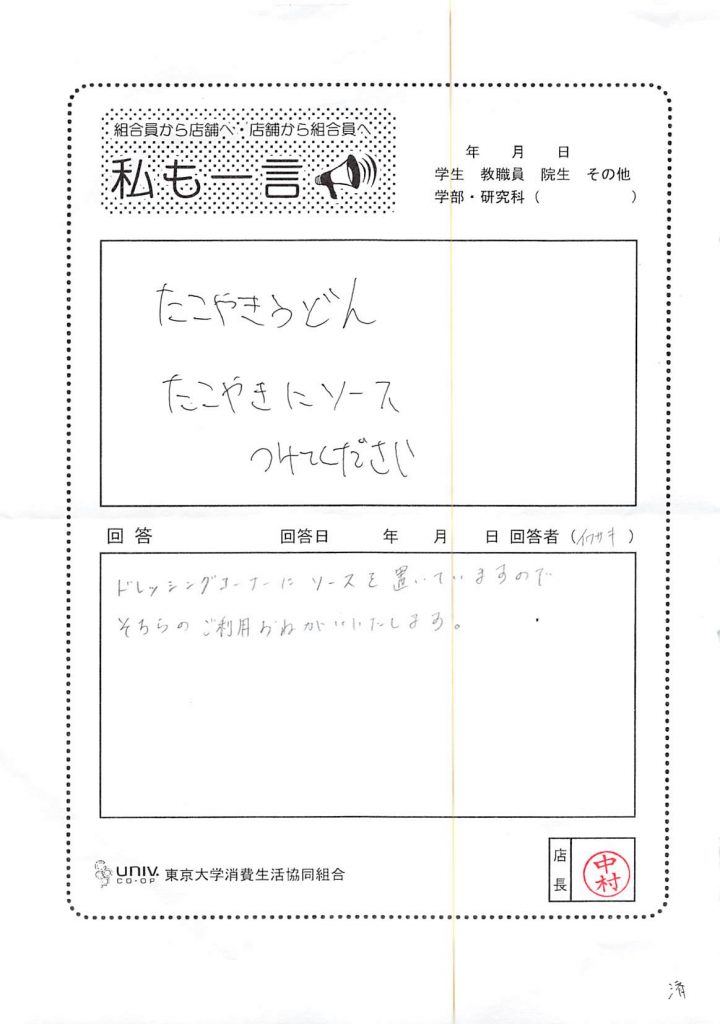 組合員から店舗へ・店舗から組合員へ
私も一言
年 月 日
学生 教職員 院生 その他
学部・研究科（ ）
たこやきうどん
たこやきにソース
つけてください
回答 回答日 年 月 日 回答者（イワサキ）
ドレッシングコーナーにソースを置いていますので
そちらのご利用おねがいいたします。
UNIV. CO-OP 東京大学消費生活協同組合
店長 中村
済